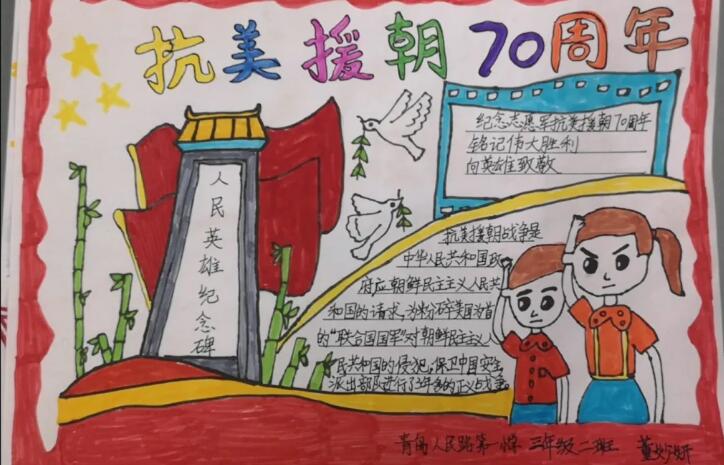 抗美援朝70周年
纪念志愿军抗美援朝70周年
铭记伟大胜利
向英雄致敬
人民英雄纪念碑
抗美援朝战争是
中华人民共和国政
府应朝鲜民主主义人民共
和国的请求,为粉碎美国为首
的“联合国国军”对朝鲜民主主义人
民共和国的侵犯,保卫中国安全,
派出部队进行了3年多的正义战争。
青岛人民路第一小学 三年级二班 董妙妍